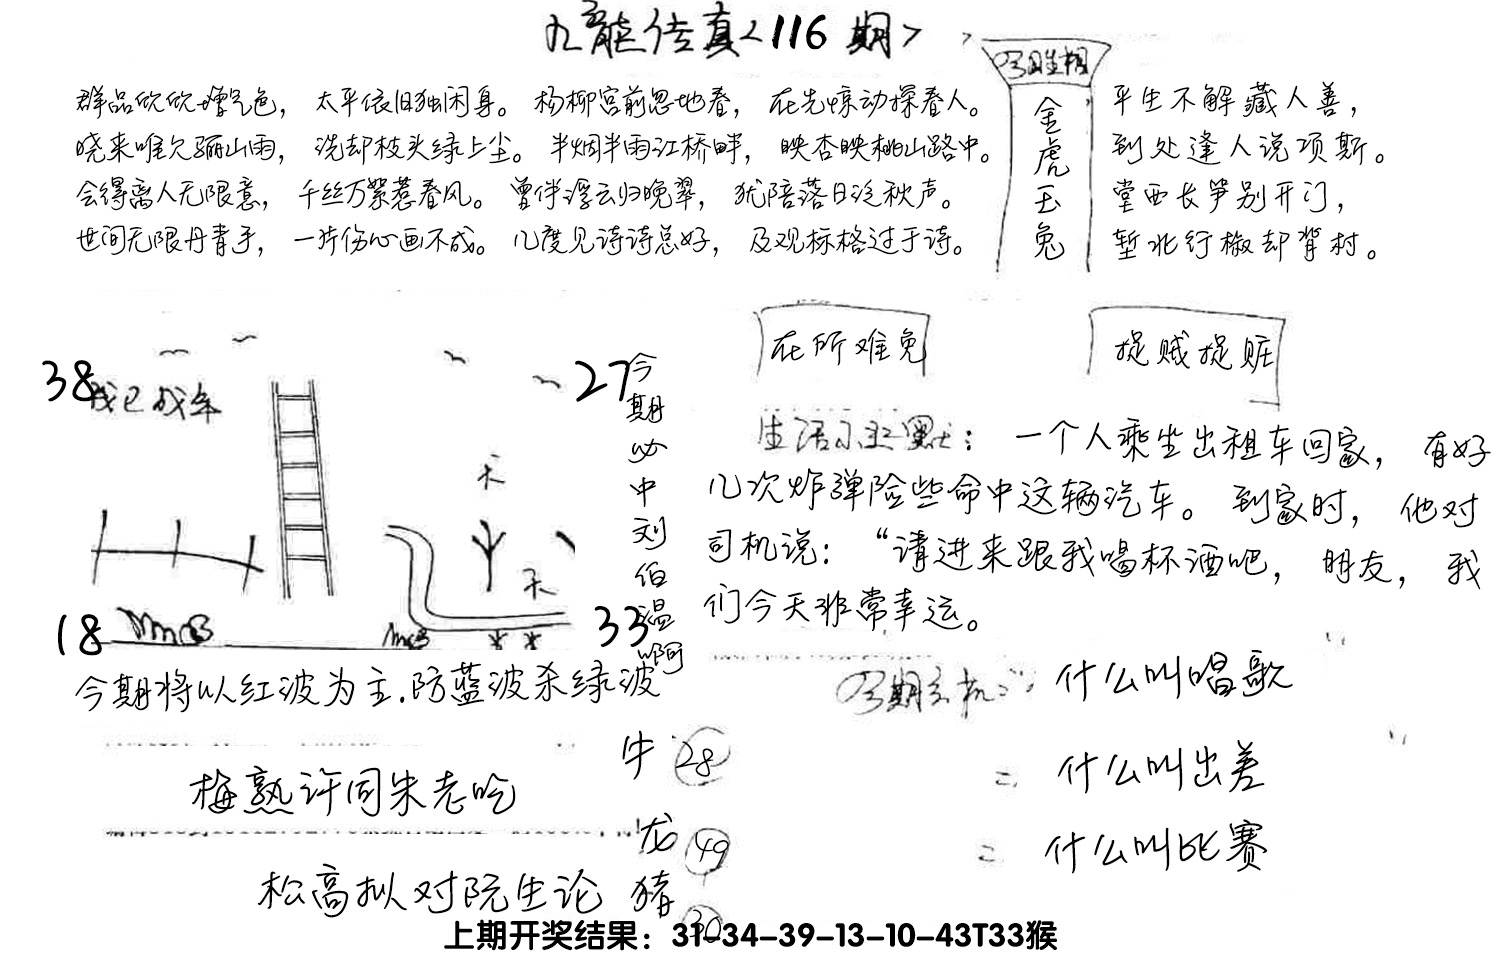 九龍传真<116期>
今期生相
金虎玉兔
群品欣欣增气色，太平依旧独闲身。杨柳宫前忽地春，在先惊动探春人。
晓来唯欠骊山雨，洗却枝头绿上尘。半烟半雨江桥畔，映杏映桃山路中。
会得离人无限意，千丝万絮惹春风。曾伴浮云归晚翠，犹陪落日泛秋声。
世间无限丹青手，一片伤心画不成。几度见诗诗总好，及观标格过于诗。
平生不解藏人善，
到处逢人说项斯。
堂西长笋别开门，
堑北行椒却背村。
38
27
18
33
天
天
今期必中刘伯温啊
今期将以红波为主.防蓝波杀绿波
在所难免
捉贼捉赃
生活小幽默：一个人乘坐出租车回家，有好
几次炸弹险些命中这辆汽车。到家时，他对
司机说：“请进来跟我喝杯酒吧，朋友，我
们今天非常幸运。
今期玄机：什么叫唱歌
= 什么叫出差
= 什么叫比赛
牛 28
龙 49
猪 30
梅熟许同朱老吃
松高拟对阮生论
上期开奖结果：31-34-39-13-10-43T33猴